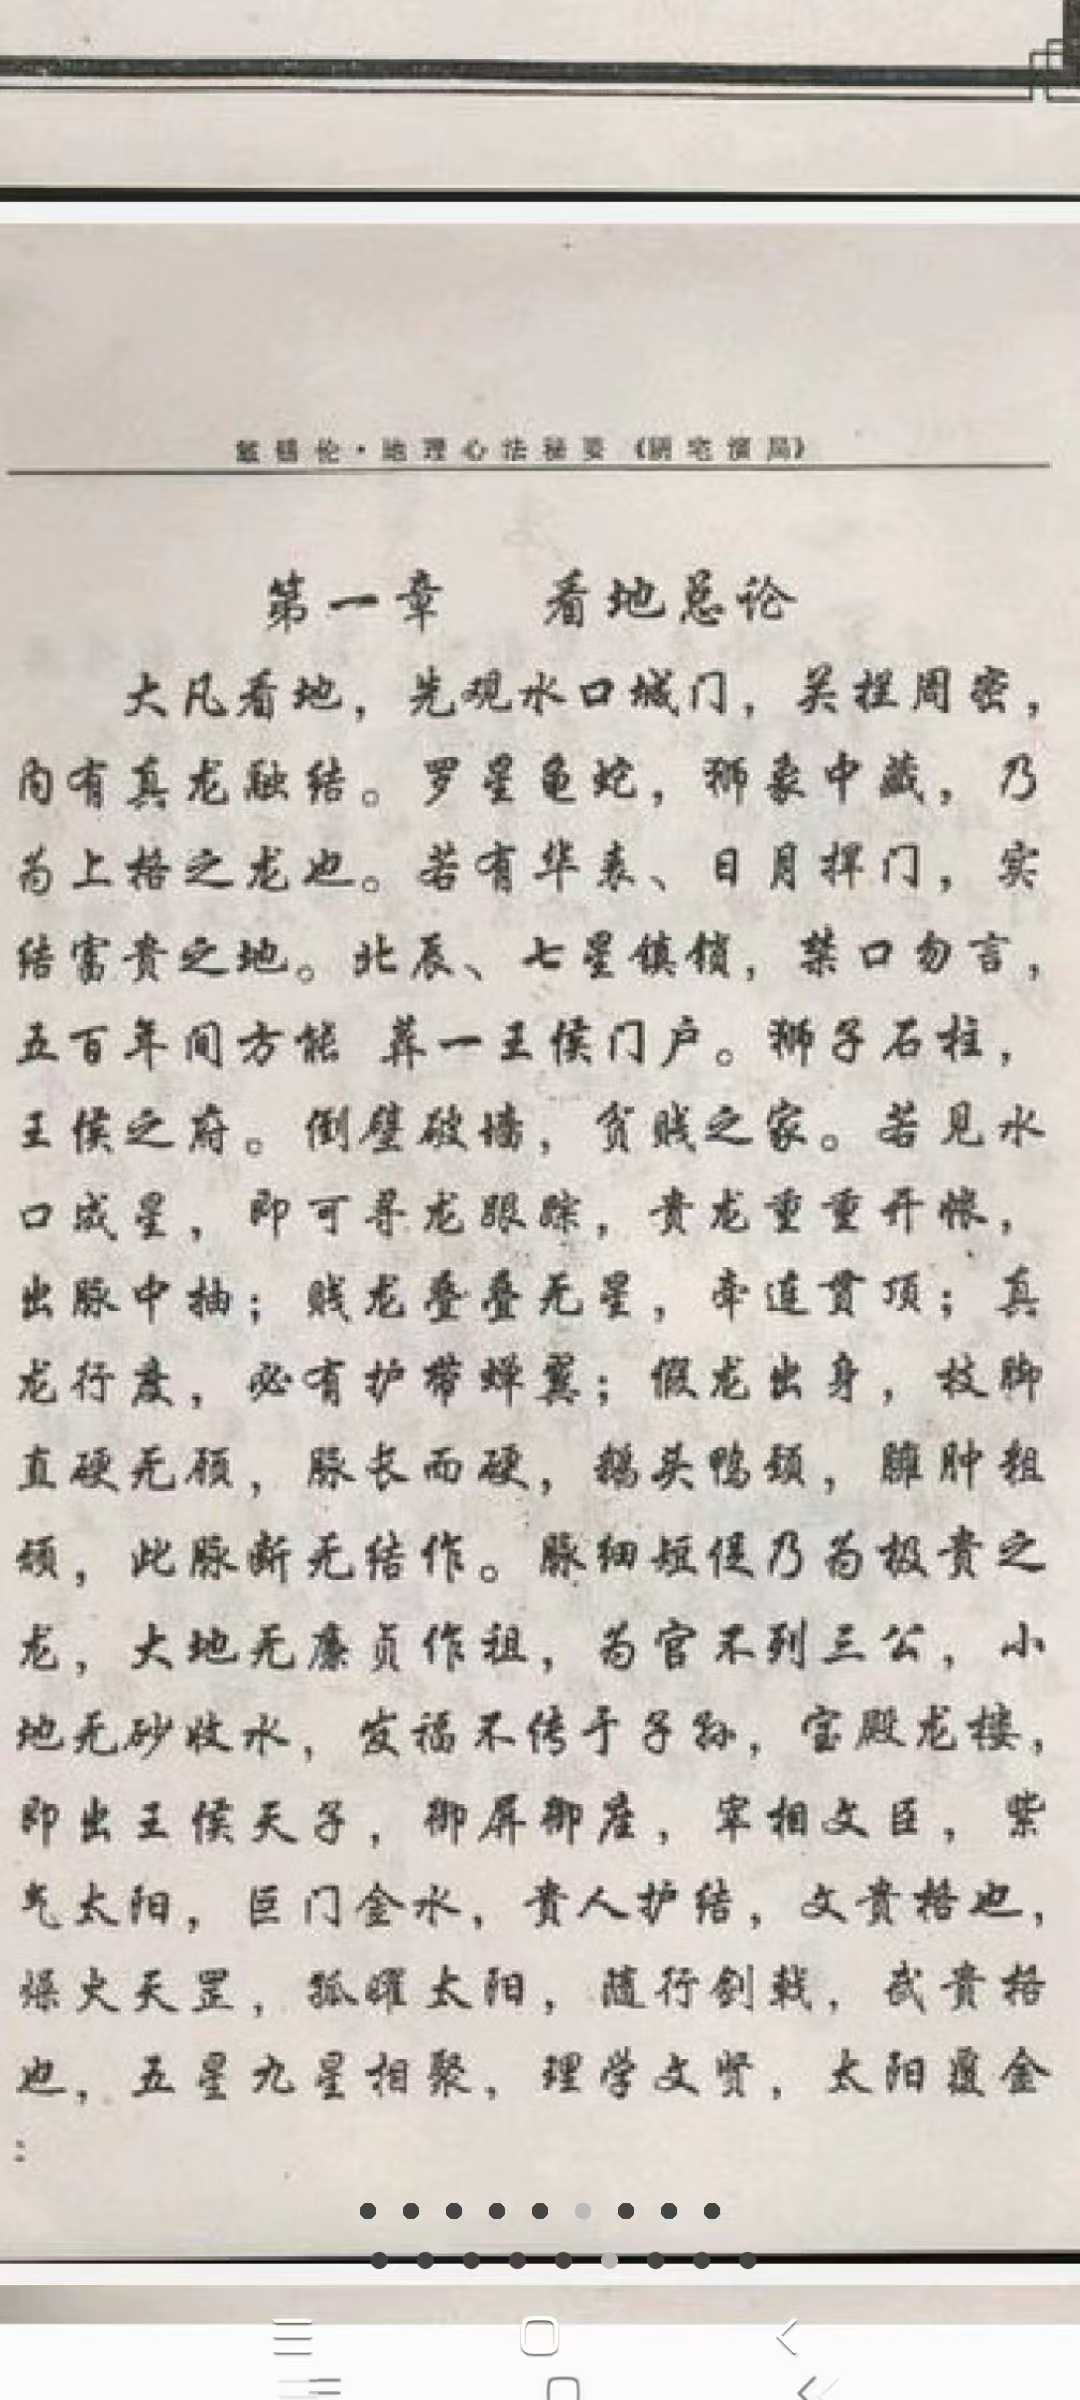 戴锡伦·地理心法秘要《阴宅演局》
第一章 看地总论
大凡看地，先观水口城门，关拦周密，
内有真龙融结。罗星龟蛇，狮象中藏，乃
为上格之龙也。若有华表、日月捍门，实
结富贵之地。北辰、七星镇锁，禁口勿言，
五百年间方能 葬一王侯门户。狮子石柱，
王侯之府。倒壁破墙，贫贱之家。若见水
口成星，即可寻龙跟踪，贵龙重重开帐，
出脉中抽；贱龙叠叠无星，牵连贯顶；真
龙行度，必有护带蝉翼；假龙出身，枝脚
直硬无顾，脉长而硬，鹅头鸭颈，臃肿粗
顽，此脉断无结作。脉细短促乃为极贵之
龙，大地无廉贞作祖，为官不列三公，小
地无砂收水，发福不传于子孙，宝殿龙楼，
即出王侯天子，御屏御座，宰相文臣，紫
气太阳，巨门金水，贵人护结，文贵格也，
燥火天罡，孤曜太阳，随行剑戟，武贵格
也，五星九星相聚，理学文贤，太阳覆金